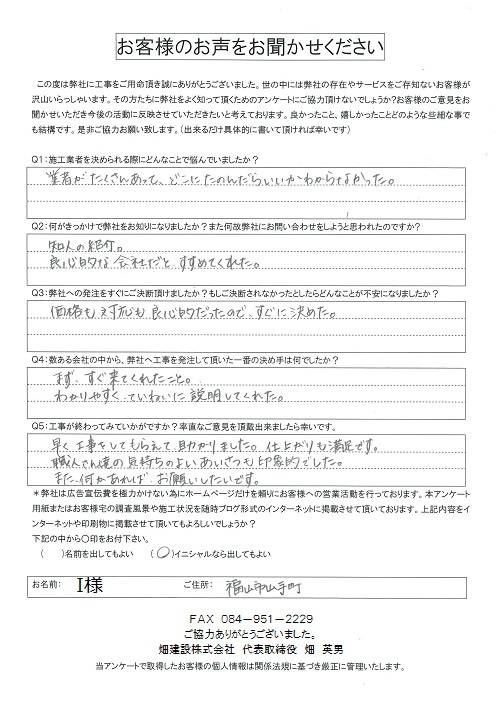 お客様のお声をお聞かせください
この度は弊社に工事をご用命頂き誠にありがとうございました。世の中には弊社の存在やサービスをご存知ないお客様が
沢山いらっしゃいます。その方たちに弊社をよく知って頂くためのアンケートにご協力頂けないでしょうか？お客様のご意見をお
聞かせいただき今後の活動に反映させていただきたいと考えております。良かったこと、嬉しかったことどのような些細な事で
も結構です。是非ご協力お願い致します。（出来るだけ具体的に書いて頂ければ幸いです）
Q1：施工業者を決められる際にどんなことで悩んでいましたか？
業者がたくさんあって、どこにたのんだらいいかわからなかった。
Q2：何がきっかけで弊社をお知りになりましたか？また何故弊社にお問い合わせをしようと思われたのですか？
知人の紹介。
良心的な会社だと、すすめてくれた。
Q3：弊社への発注をすぐにご決断頂けましたか？もしご決断されなかったとしたらどんなことが不安になりましたか？
価格も対応も良心的だったので、すぐに決めた。
Q4：数ある会社の中から、弊社へ工事を発注して頂いた一番の決め手は何でしたか？
まず、すぐ来てくれたこと。
わかりやすく、ていねいに説明してくれた。
Q5：工事が終わってみていかがですか？率直なご意見を頂戴出来ましたら幸いです。
早く工事をしてもらえて、助かりました。仕上がりも満足です。
職人さん達の気持ちのよいあいさつも印象的でした。
また何かあれば、お願いしたいです。
＊弊社は広告宣伝費を極力かけない為にホームページだけを頼りにお客様への営業活動を行っております。本アンケート
用紙またはお客様宅の調査風景や施工状況を随時ブログ形式のインターネットに掲載させて頂いております。上記内容をイ
ンターネットや印刷物に掲載させて頂いてもよろしいでしょうか？
下記の中から〇印をお付下さい。
（　　）名前を出してもよい　（〇）イニシャルなら出してもよい
お名前：　I様　ご住所：　福山市山手町
FAX　084－951－2229
ご協力ありがとうございました。
畑建設株式会社　代表取締役　畑　英男
当アンケートで取得したお客様の個人情報は関係法規に基づき厳正に管理いたします。